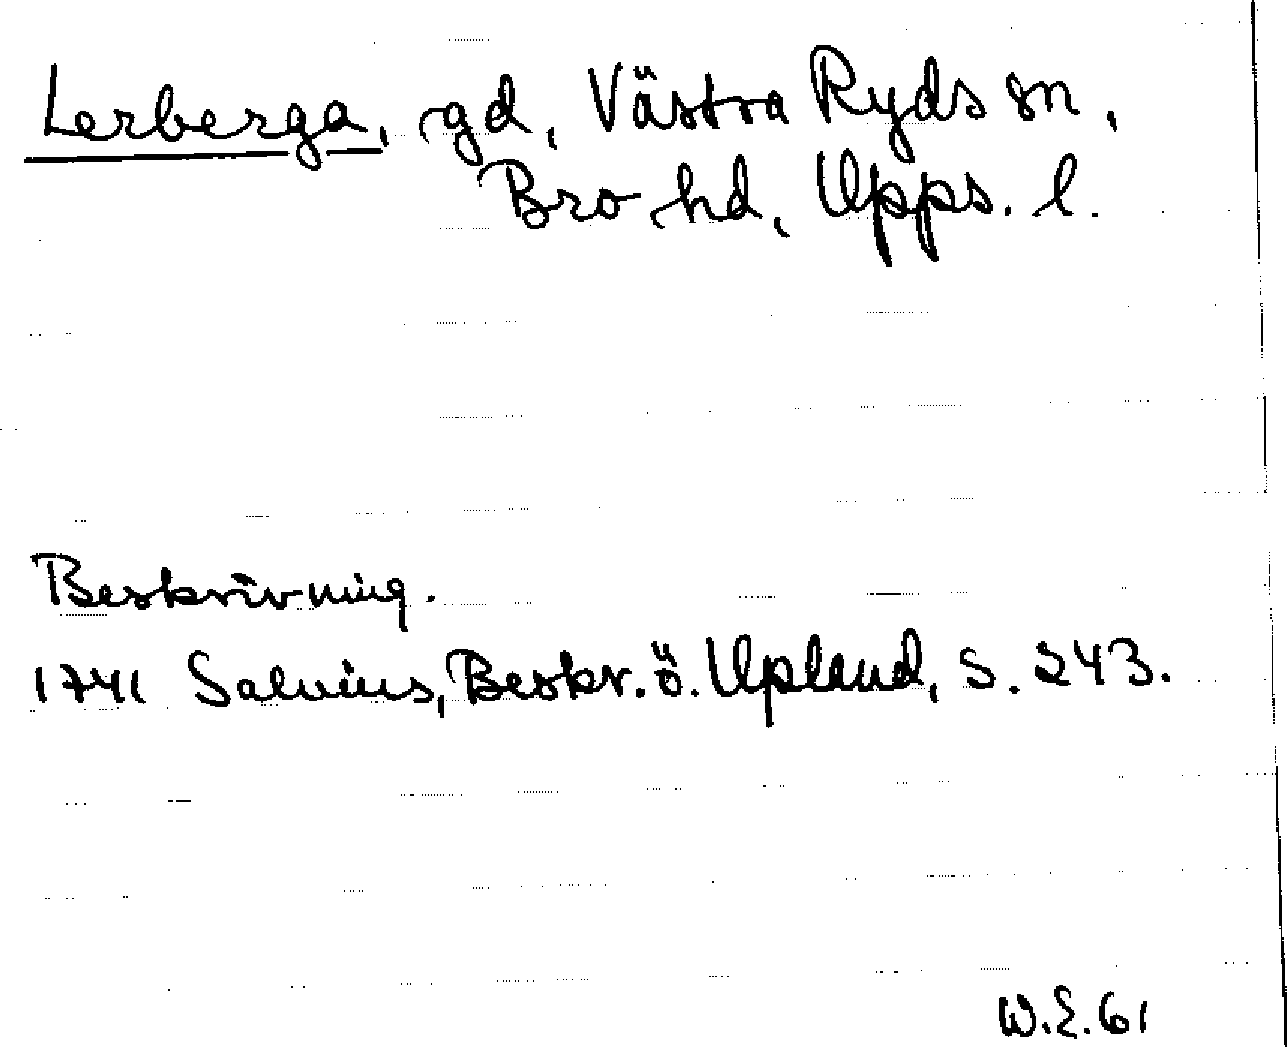 Lerberga, gd, Västra Ryds sn,
Bro hd, Upps. l.
Beskrivning.
1741 Salvius, Beskr. ö. Upland, S. 243.
W.E. 61